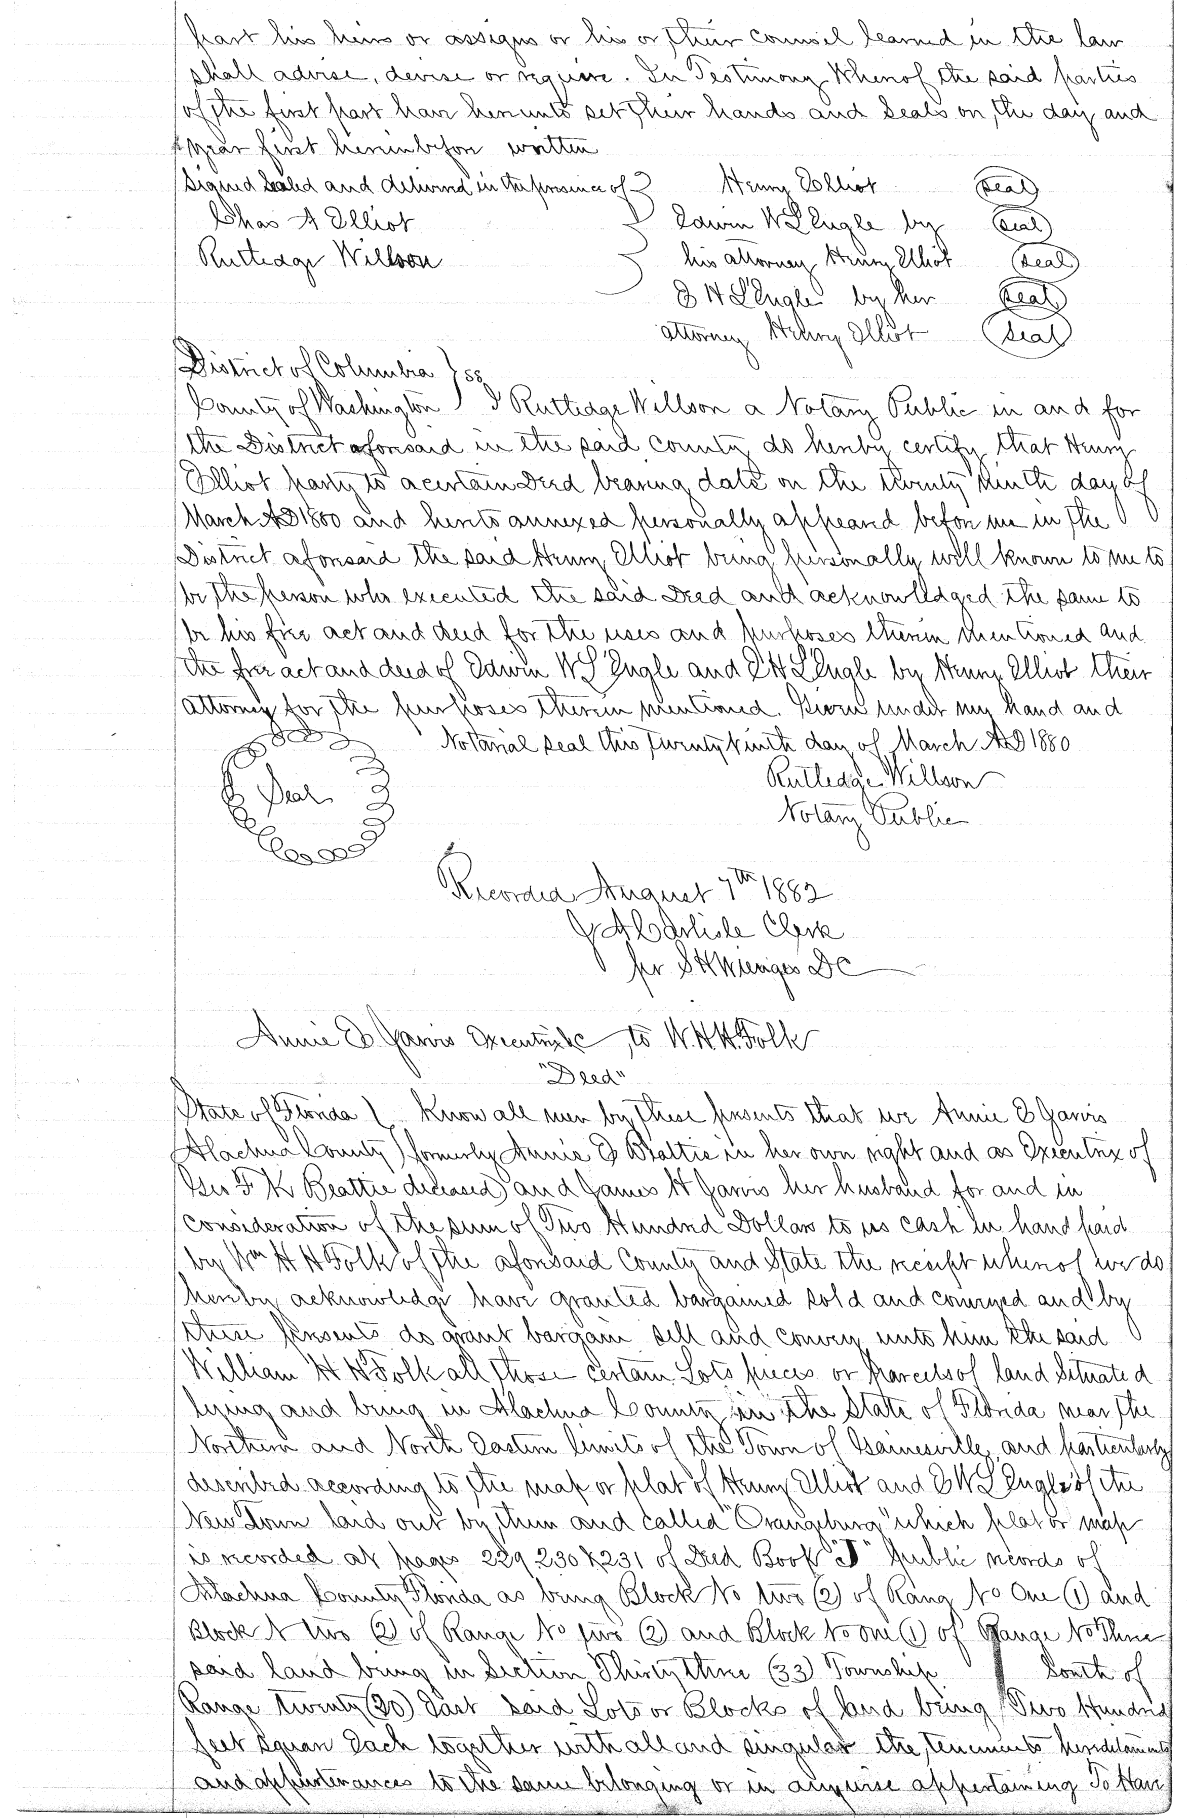 part his heirs or assigns or his or their counsel learned in the law
shall advise, devise or require. In Testimony Whereof the said parties
of the first part have hereunto set their hands and Seals on the day and
year first herein before written
Signed Sealed and delivered in the presence of Henry Elliot Seal
Chas A Elliot Edwin W L'Engle by Seal
Rutledge Willson his attorney Henry Elliot Seal
E H L'Engle by her Seal
attorney Henry Elliot Seal
District of Columbia } ss
County of Washington I Rutledge Willson a Notary Public in and for
the District aforesaid in the said County do hereby certify that Henry
Elliot party to a certain Deed bearing date on the twenty Ninth day of
March AD 1880 and hereto annexed personally appeared before me in the
District aforesaid the said Henry Elliot being personally well known to me to
be the person who executed the said Deed and acknowledged the same to
be his free act and deed for the uses and purposes therein mentioned and
the free act and deed of Edwin W L'Engle and E H L'Engle by Henry Elliot their
attorney for the purposes therein mentioned. Given under my hand and
Notarial seal this Twenty Ninth day of March AD 1880
Seal Rutledge Willson
Notary Public
Recorded August 7th 1882
J A Carlisle Clerk
per S H Wienges DC
Annie E Jarvis Executrix &c to W.H.H. Folk
"Deed"
State of Florida ) Know all men by these presents that we Annie E Jarvis
Alachua County ) formerly Annie E Beattie in her own right and as Executrix of
Geo F K Beattie deceased) and James H Jarvis her husband for and in
consideration of the sum of Two Hundred Dollars to us cash in hand paid
by Wm H H Folk of the aforesaid County and State the receipt whereof we do
hereby acknowledge have granted bargained sold and conveyed and by
these presents do grant bargain sell and convey unto him the said
William H H Folk all those certain Lots pieces or parcels of land Situated
lying and being in Alachua County in the State of Florida near the
Northern and North Eastern limits of the Town of Gainesville, and particularly
described according to the map or plat of Henry Elliot and E W L'Engle of the
New Town laid out by them and called "Orangeburg" which plat or map
is recorded at pages 229, 230 & 231 of Deed Book "J" Public records of
Alachua County Florida as being Block No two (2) of Rang No One (1) and
Block N two (2) of Range No two (2) and Block No one (1) of Range No Three
said land being in Section Thirty three (33) Township South of
Range twenty (20) East said Lots or Blocks of land being Two Hundred
feet Square Each together with all and singular the tenements hereditaments
and appurtenances to the same belonging or in anywise appertaining To Have